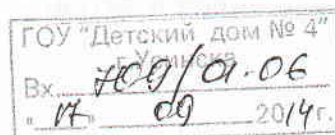 ГОУ "Детский дом № 4"
г. Усинска
Вх. 709/01-06
"17" 09 2014г.